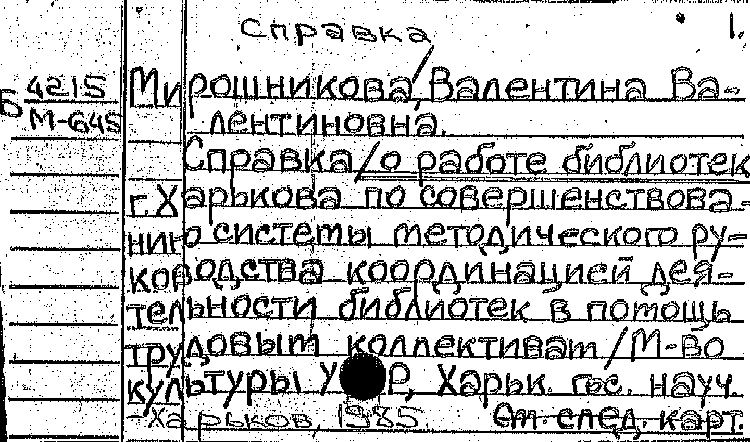 Справка 1.
Б 4215/М-645 Мирошникова, Валентина Ва-
лентиновна.
Справка/о работе библиотек
г. Харькова по совершенствова-
нию системы методического ру-
ководства координацией дея-
тельности библиотек в помощь
трудовым коллективам/М-во
культуры У Р, Харьк. гос. науч.
-Харьков, 1985. См. след. карт.